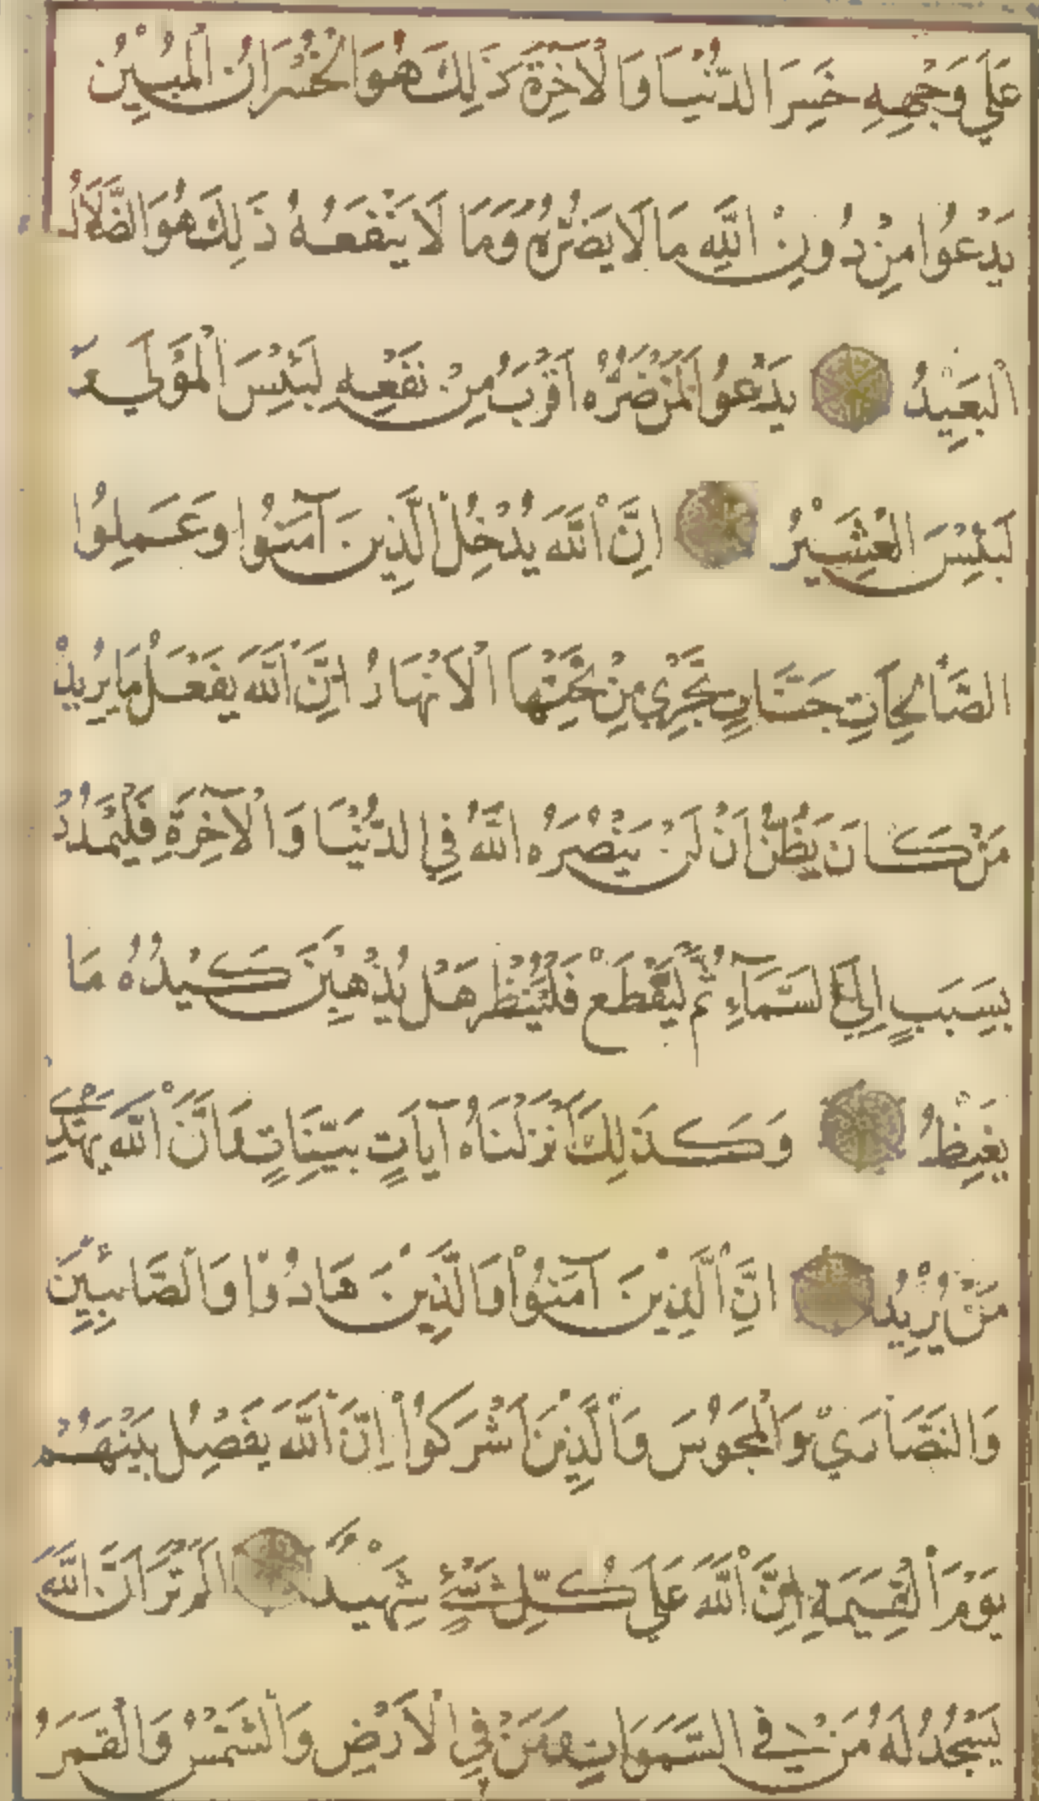 عَلَى وَجْهِهِ خَسِرَ الدُّنْيَا وَالْآخِرَةَ ذَلِكَ هُوَ الْخُسْرَانُ الْمُبِينُ
يَدْعُوا مِنْ دُونِ اللَّهِ مَا لَا يَضُرُّهُ وَمَا لَا يَنْفَعُهُ ذَلِكَ هُوَ الضَّلَالُ
الْبَعِيدُ يَدْعُوا لَمَنْ ضَرُّهُ أَقْرَبُ مِنْ نَفْعِهِ لَبِئْسَ الْمَوْلَى وَ
لَبِئْسَ الْعَشِيرُ اِنَّ اللَّهَ يُدْخِلُ الَّذِينَ آمَنُوا وَعَمِلُوا
الصَّالِحَاتِ جَنَّاتٍ تَجْرِي مِنْ تَحْتِهَا الْاَنْهَارُ اِنَّ اللَّهَ يَفْعَلُ مَا يُرِيدُ
مَنْ كَانَ يَظُنُّ اَنْ لَنْ يَنْصُرَهُ اللَّهُ فِي الدُّنْيَا وَالْآخِرَةِ فَلْيَمْدُدْ
بِسَبَبٍ اِلَى السَّمَآءِ ثُمَّ لْيَقْطَعْ فَلْيَنْظُرْ هَلْ يُذْهِبَنَّ كَيْدُهُ مَا
يَغِيظُ وَكَذَلِكَ اَنْزَلْنَاهُ آيَاتٍ بَيِّنَاتٍ وَاَنَّ اللَّهَ يَهْدِي
مَنْ يُرِيدُ اِنَّ الَّذِينَ آمَنُوا وَالَّذِينَ هَادُوا وَالصَّابِئِينَ
وَالنَّصَارَى وَالْمَجُوسَ وَالَّذِينَ اَشْرَكُوا اِنَّ اللَّهَ يَفْصِلُ بَيْنَهُمْ
يَوْمَ الْقِيَمَةِ اِنَّ اللَّهَ عَلَى كُلِّ شَيْءٍ شَهِيدٌ اَلَمْ تَرَ اَنَّ اللَّهَ
يَسْجُدُ لَهُ مَنْ فِي السَّمَوَاتِ وَمَنْ فِي الْاَرْضِ وَالشَّمْسُ وَالْقَمَرُ